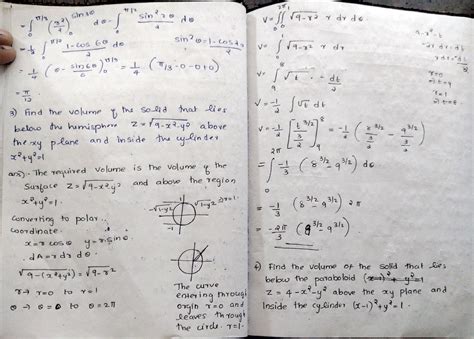 = ∫₀^{π/3} (r²/2)₀^{sin3θ} dθ = ∫₀^{π/3} sin²3θ/2 dθ
= 1/2 ∫₀^{π/3} 1-cos6θ/2 dθ
= 1/4 (θ - sin6θ/6)₀^{π/3} = 1/4 (π/3-0-0+0)
= π/12
3) Find the volume of the solid that lies
below the hemisphere z=√9-x²-y² above
the xy plane and inside the cylinder
x²+y²=1
ans):- The required volume is the volume of the
Surface z=√9-x²-y² and above the region
x²+y²=1.
Converting to polar
coordinate.
x=r cosθ y=r sinθ.
dA=r dr dθ.
√9-(x²+y²)=√9-r²
r → r=0 to r=1
θ → θ=0 to θ=2π
-√1-x² √1-x²
r=1.
The curve
entering through
origin r=0 and
leaves through
the circle r=1.
V=∫₀^{2π}∫₀^{1} √9-r² r dr dθ
V=∫∫ √9-r² r dr dθ
9-r²=t
-2r dr=dt
r=0
t=9
r=1
t=8
V=∫₉⁸ √t · -dt/2
V=-1/2 ∫ √t dt
V=-1/2 [t^{3/2}/(3/2)]₉⁸ = -1/2 (8^{3/2}/(3/2) - 9^{3/2}/(3/2))
= ∫₀^{2π} -1/3 (8^{3/2} - 9^{3/2}) dθ
= -1/3 (8^{3/2} - 9^{3/2}) 2π
= -2π/3 (8^{3/2} - 9^{3/2})
4) Find the volume of the solid that lies
below the paraboloid
z=4-x²-y² above the xy plane and
inside the cylinder (x-1)²+y²=1.